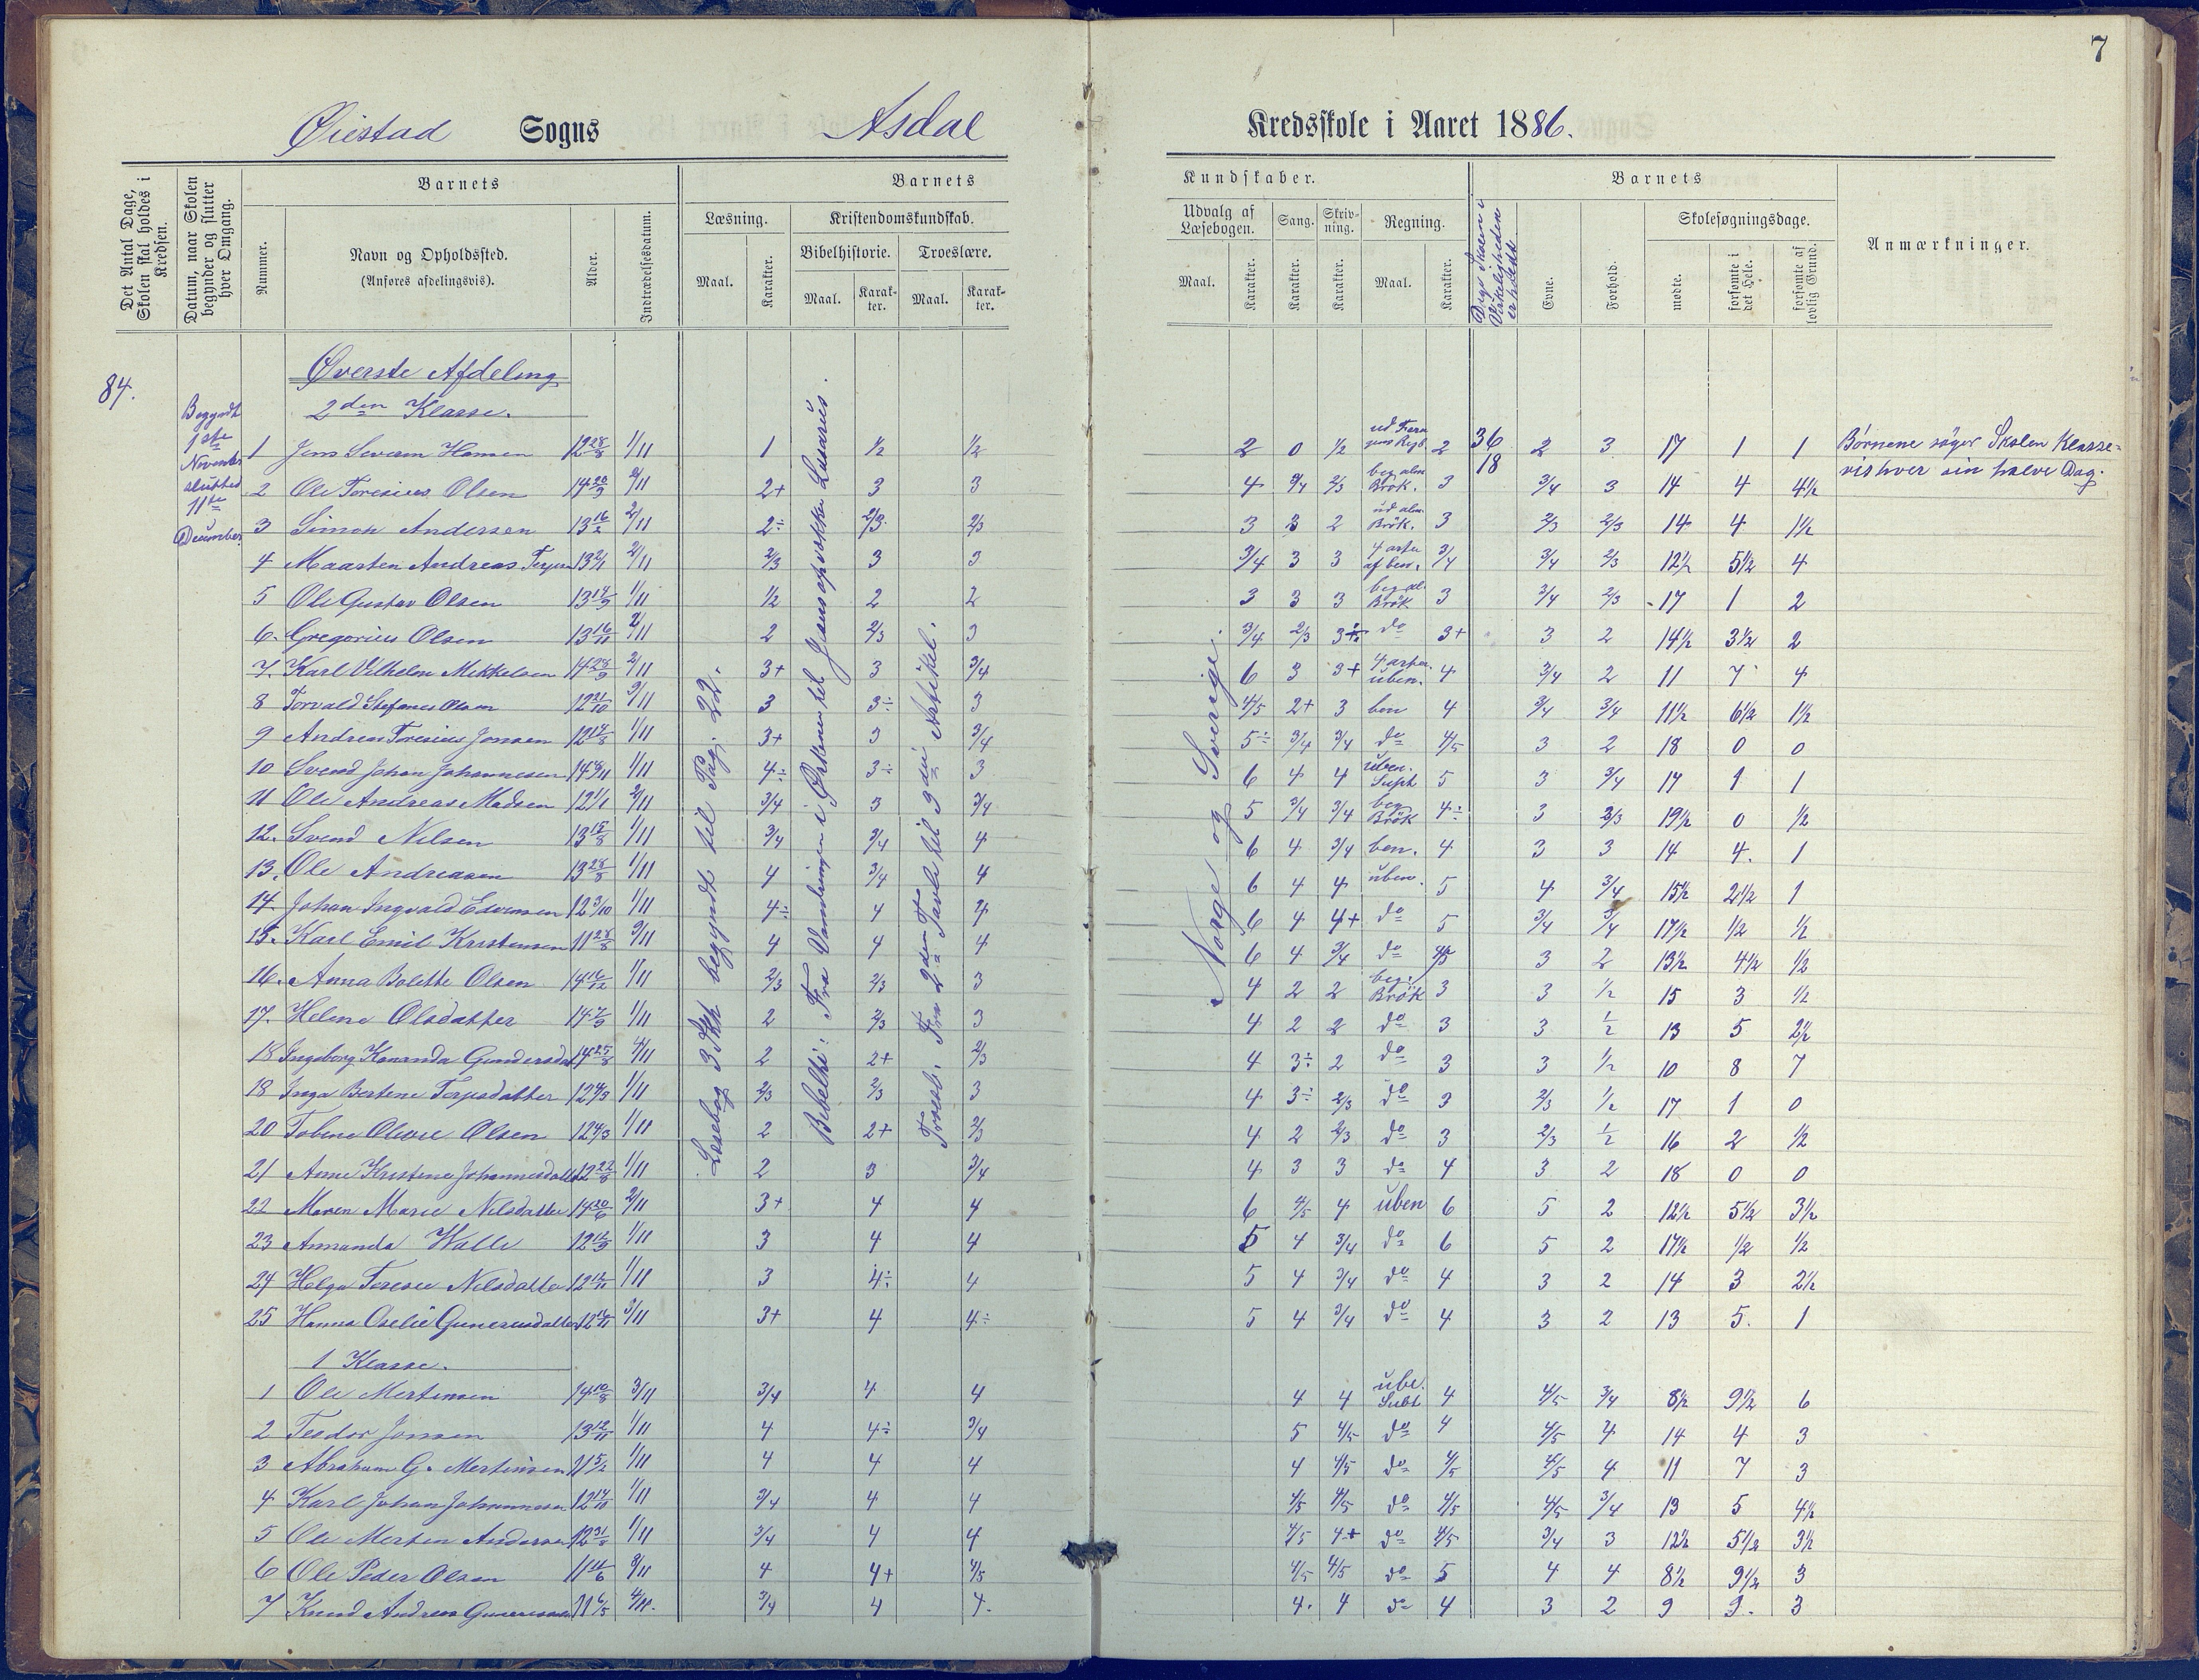 7
Øiestad Sogns Asdal Kredsskole i Aaret 1886.
Det Antal Dage, Skolen skal holdes i Kredsen.
Datum, naar Skolen begynder og slutter hver Omgang.
Barnets
Nummer.
Navn og Opholdssted.
(Anføres afdelingsvis).
Alder.
Indtrædelsesdatum.
Barnets
Læsning.
Maal.
Karakter.
Kristendomskundskab.
Bibelhistorie.
Maal.
Karakter.
Troeslære.
Maal.
Karakter.
Kundskaber.
Udvalg af Læsebogen.
Maal.
Karakter.
Sang.
Karakter.
Skrivning.
Karakter.
Regning.
Maal.
Karakter.
Dage Skolen i Virkeligheden er holdt
Barnets
Evne.
Forhold.
Skolesøgningsdage.
mødte.
forsømte i det Hele.
forsømte af lovlig Grund.
Anmærkninger.
84.
Begyndt 1ste November sluttet 11te December
Øverste Afdeling
2den Klasse.
Læsebog 3 Skp begyndt til Pag. 22.
Bibelhi: Fra Vandringen i Ørkenen til Jesus opvækker Lasarus.
Troesl. Fra 2den Tavle til 3die Artikel.
Norge og Sverige.
36
18
Børnene søger Skolen Klasse-
vis hver sin halve Dag.
1 Jens Severin Hansen 12 28/8 1/11 1 1/2 1/2 2 0 1/2 2 2 3 17 1 1
2 Ole Toresius Olsen 14 20/9 2/11 2+ 3 3 4 3/4 2/3 beg alm Brøk. 3 3/4 3 14 4 4 1/2
3 Simon Andersen 13 16/2 2/11 2÷ 2/3 2/3 3 3 2 ud alm Brøk. 3 2/3 2/3 14 4 1 1/2
4 Maarten Andreas 13 2/1 2/11 2/3 3 3 3/4 3 3 4 arter af ben. 3/4 3/4 2/3 12 1/2 5 1/2 4
5 Ole Gustav Olsen 13 14/9 1/11 1/2 2 2 3 3 3 beg al. Brøk 3 3/4 2/3 17 1 2
6. Gregorius Olsen 13 16/11 2/11 2 2/3 3 3/4 2/3 3÷ do 3+ 3 2 14 1/2 3 1/2 2
7. Karl Vilhelm Mikkelsen 14 23/9 2/11 3+ 3 3/4 6 3 3+ 4 arter uben. 4 3/4 2 11 7 4
8 Torvald Stefanus Olsen 12 21/10 3/11 3 3÷ 3 4/5 2+ 3 ben 4 3/4 3/4 11 1/2 6 1/2 1 1/2
9 Andreas Toresius Jonsen 12 14/8 1/11 3+ 3 3/4 5÷ 3/4 3/4 do 4/5 3 2 18 0 0
10 Svend Johan Johannesen 14 1/11 4÷ 3÷ 3 6 4 4 uben. Supt 5 3 3/4 17 1 1
11 Ole Andreas Madsen 12 1/1 2/11 3/4 3 3/4 5 3/4 3/4 beg Brøk 4÷ 3 2/3 19 1/2 0 1/2
12. Svend Nilsen 13 15/8 1/11 3/4 3/4 4 6 4 3/4 ben. 4 3 3 14 4. 1
13. Ole Andreasen 13 28/8 1/11 4 3/4 4 6 4 4 uben. 5 4 3/4 15 1/2 2 1/2 1
14. Johan Ingvald Edvinsen 12 3/10 1/11 4÷ 4 4 6 4 4+ do 5 3/4 3/4 17 1/2 1/2 1/2
15. Karl Emil Kristensen 11 28/8 3/11 4 4 4 6 4 3/4 do 4/5 3 2 13 1/2 4 1/2 1/2
16. Anna Bolette Olsen 14 16/12 1/11 2/3 2/3 3 4 2 2 beg: Brøk 3 3 1/2 15 3 1/2
17. Helene Olsdatter 14 7/9 1/11 2 2/3 3 4 2 2 do 3 3 1/2 13 5 2 1/2
18 Ingeborg Gundersdat 14 25/8 4/11 2 2+ 2/3 4 3÷ 2 do 3 3 1/2 10 8 7
18 Inga Bertine Terjesdatter 12 4/3 1/11 2/3 2/3 3 4 3÷ 2/3 do 3 2/3 1/2 17 1 0
20 Tobine Olivie Olsen 12 4/3 1/11 2 2+ 2/3 4 2 2/3 do 3 2/3 1/2 16 2 1/2
21 Anne Kristine Johannesdatter 12 22/8 1/11 2 3 3/4 4 3 3 do 4 3 2 18 0 0
22 Maren Marie Nilsdatter 14 20/6 2/11 3+ 4 4 6 4/5 4 uben 6 5 2 12 1/2 5 1/2 3 1/2
23 Amanda Walle 12 12/9 1/11 3 4 4 5 4 3/4 do 6 5 2 17 1/2 1/2 1/2
24 Helga Teresie Nilsdatter 12 12/11 1/11 3 4÷ 4 5 4 3/4 do 4 3 2 14 3 2 1/2
25 Hanna Oselie Gunerusdatter 12 3/11 3+ 4 4÷ 5 4 3/4 do 4 3 2 13 5. 1
1 Klasse.
1 Ole Mortensen 14 10/8 3/11 3/4 4 4 4 4 ube. Subt 4 4/5 3/4 8 1/2 9 1/2 6
2 Teodor Jonsen 13 12/11 1/11 4 4÷ 3/4 5 4/5 do 4 4/5 4 14 4 3
3 Abraham G. Mortensen 11 5/2 1/11 4 4 4 4 4/5 do 4/5 4/5 4 11 7 3
4 Karl Johan Johannesen 12 14/10 1/11 3/4 4 4 4/5 4/5 do 4/5 4/5 3/4 13 5 4 1/2
5 Ole Morten Andersen 12 31/8 1/11 3/4 4 4 4/5 4+ do 4/5 3/4 3 12 1/2 5 1/2 3 1/2
6 Ole Peder Olsen 11 11/6 3/11 4 4+ 4/5 4/5 4/5 do 5 4 4 8 1/2 9 1/2 3
7 Knud Andreas 11 6/5 4/11. 3/4 4 4. 4. 4 do 4 3 2 9 9. 3